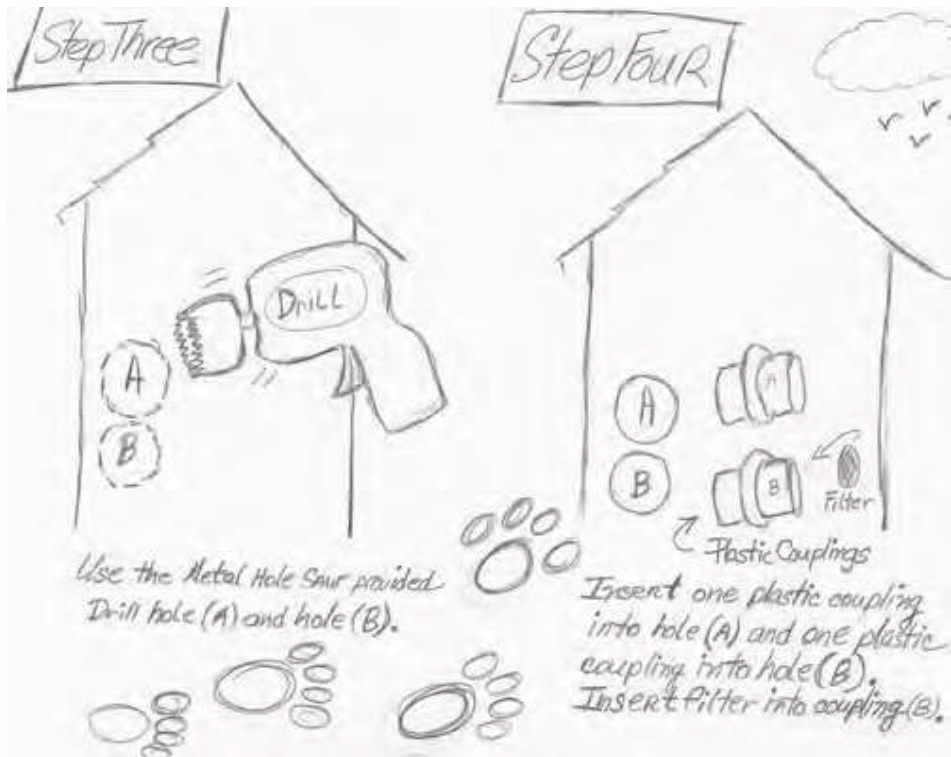 Step Three
Drill
A
B
Use the Metal Hole Saw provided
Drill hole (A) and hole (B).
Step Four
A
A
B
B
Filter
Plastic Couplings
Insert one plastic coupling
into hole (A) and one plastic
coupling into hole (B).
Insert filter into coupling (B).